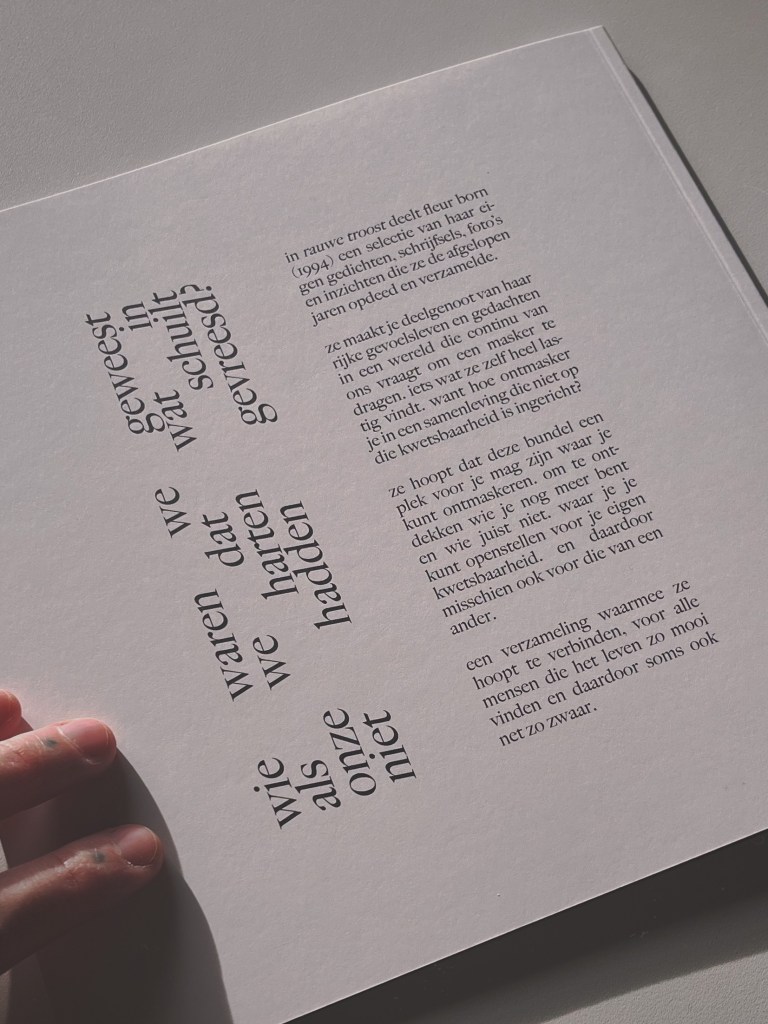 wie waren we geweest
als we dat wat in
onze harten schuilt
niet hadden gevreesd?
in rauwe troost deelt fleur born
(1994) een selectie van haar ei-
gen gedichten, schrijfsels, foto's
en inzichten die ze de afgelopen
jaren opdeed en verzamelde.
ze maakt je deelgenoot van haar
rijke gevoelsleven en gedachten
in een wereld die continu van
ons vraagt om een masker te
dragen. iets wat ze zelf heel las-
tig vindt. want hoe ontmasker
je in een samenleving die niet op
die kwetsbaarheid is ingericht?
ze hoopt dat deze bundel een
plek voor je mag zijn waar je
kunt ontmaskeren. om te ont-
dekken wie je nog meer bent
en wie juist niet. waar je je
kunt openstellen voor je eigen
kwetsbaarheid. en daardoor
misschien ook voor die van een
ander.
een verzameling waarmee ze
hoopt te verbinden, voor alle
mensen die het leven zo mooi
vinden en daardoor soms ook
net zo zwaar.